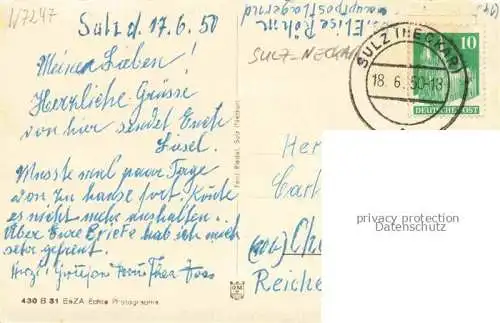 1/7247
Sulz d. 17.6.50
Meine Lieben!
Herzliche Grüsse
von hier sendet Euch
Liesel.
Musste mal paar Tage
von zu hause fort. Konnte
es nicht mehr aushalten.
Über Eure Briefe hab ich mich
sehr gefreut.
Herzl. Grüße
430 B 31 EsZA Echte Photographie
Elise Röhm
hauptpostlagernd
SULZ-NECKAR
SULZ (NECKAR)
18.6.50-18
10
DEUTSCHE POST
Her
Carl
Che
Reiche
privacy protection
Datenschutz